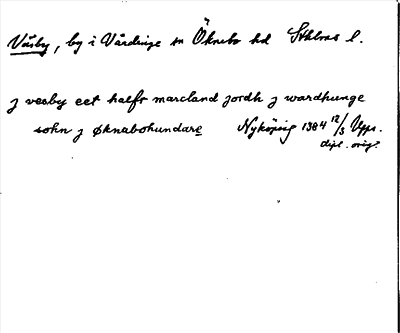 Väsby, by i Vårdinge sn Öknebo hd Sthlms l.
j vesby eet halfs marcland jordh j wardhunge
sokn j øknabohundare Nyköping 1384 12/3 Upps.
dipl. orig.